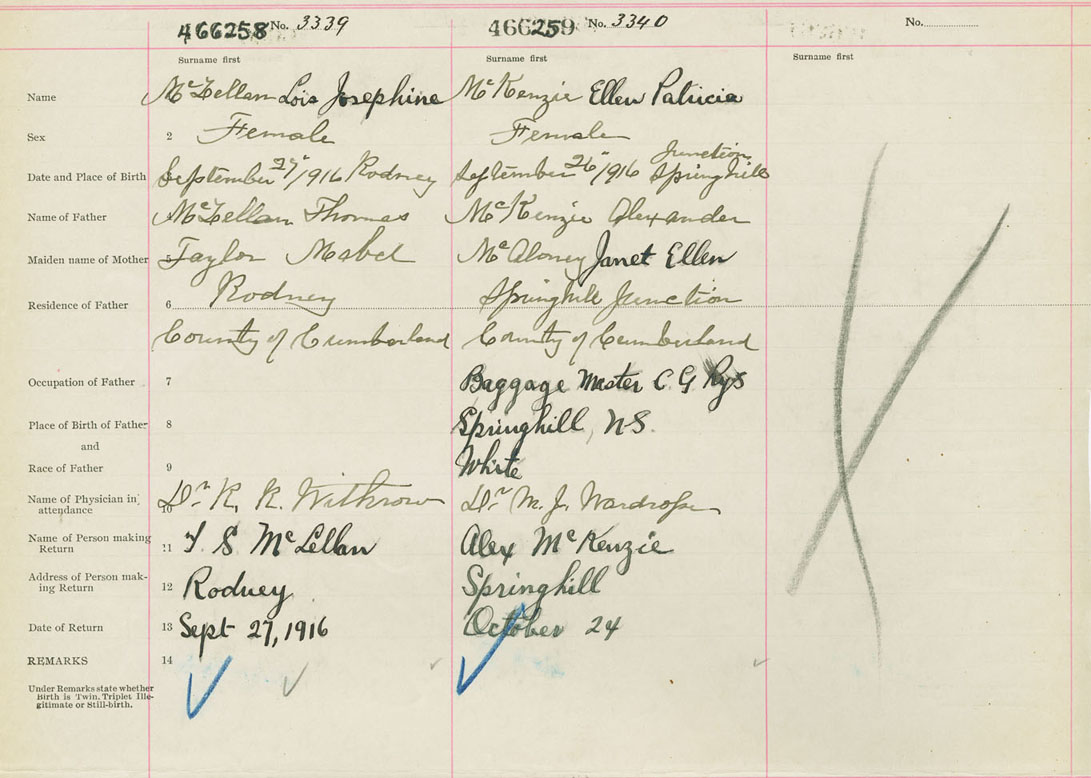 466258 No. 3339 466259 No. 3340 No.
Surname first Surname first Surname first
Name McLellan Lois Josephine McKenzie Ellen Patricia
Sex 2 Female Female
Junction
Date and Place of Birth September /1916 Rodney September 26"/1916 Springhill
Name of Father McLellan Thomas McKenzie Alexander
Maiden name of Mother Taylor Mabel McAloney Janet Ellen
Residence of Father 6 Rodney Springhill Junction
County of Cumberland County of Cumberland
Occupation of Father 7 Baggage Master C G Rys
Place of Birth of Father 8 Springhill, N.S.
and
Race of Father 9 White
Name of Physician in Dr. R. R. Withrow Dr. M. J. Wardrope
attendance 10
Name of Person making 11 T S McLellan Alex McKenzie
Return
Address of Person mak- 12 Rodney Springhill
ing Return
Date of Return 13 Sept 27, 1916 October 24
REMARKS 14
Under Remarks state whether
Birth is Twin, Triplet Ille-
gitimate or Still-birth.